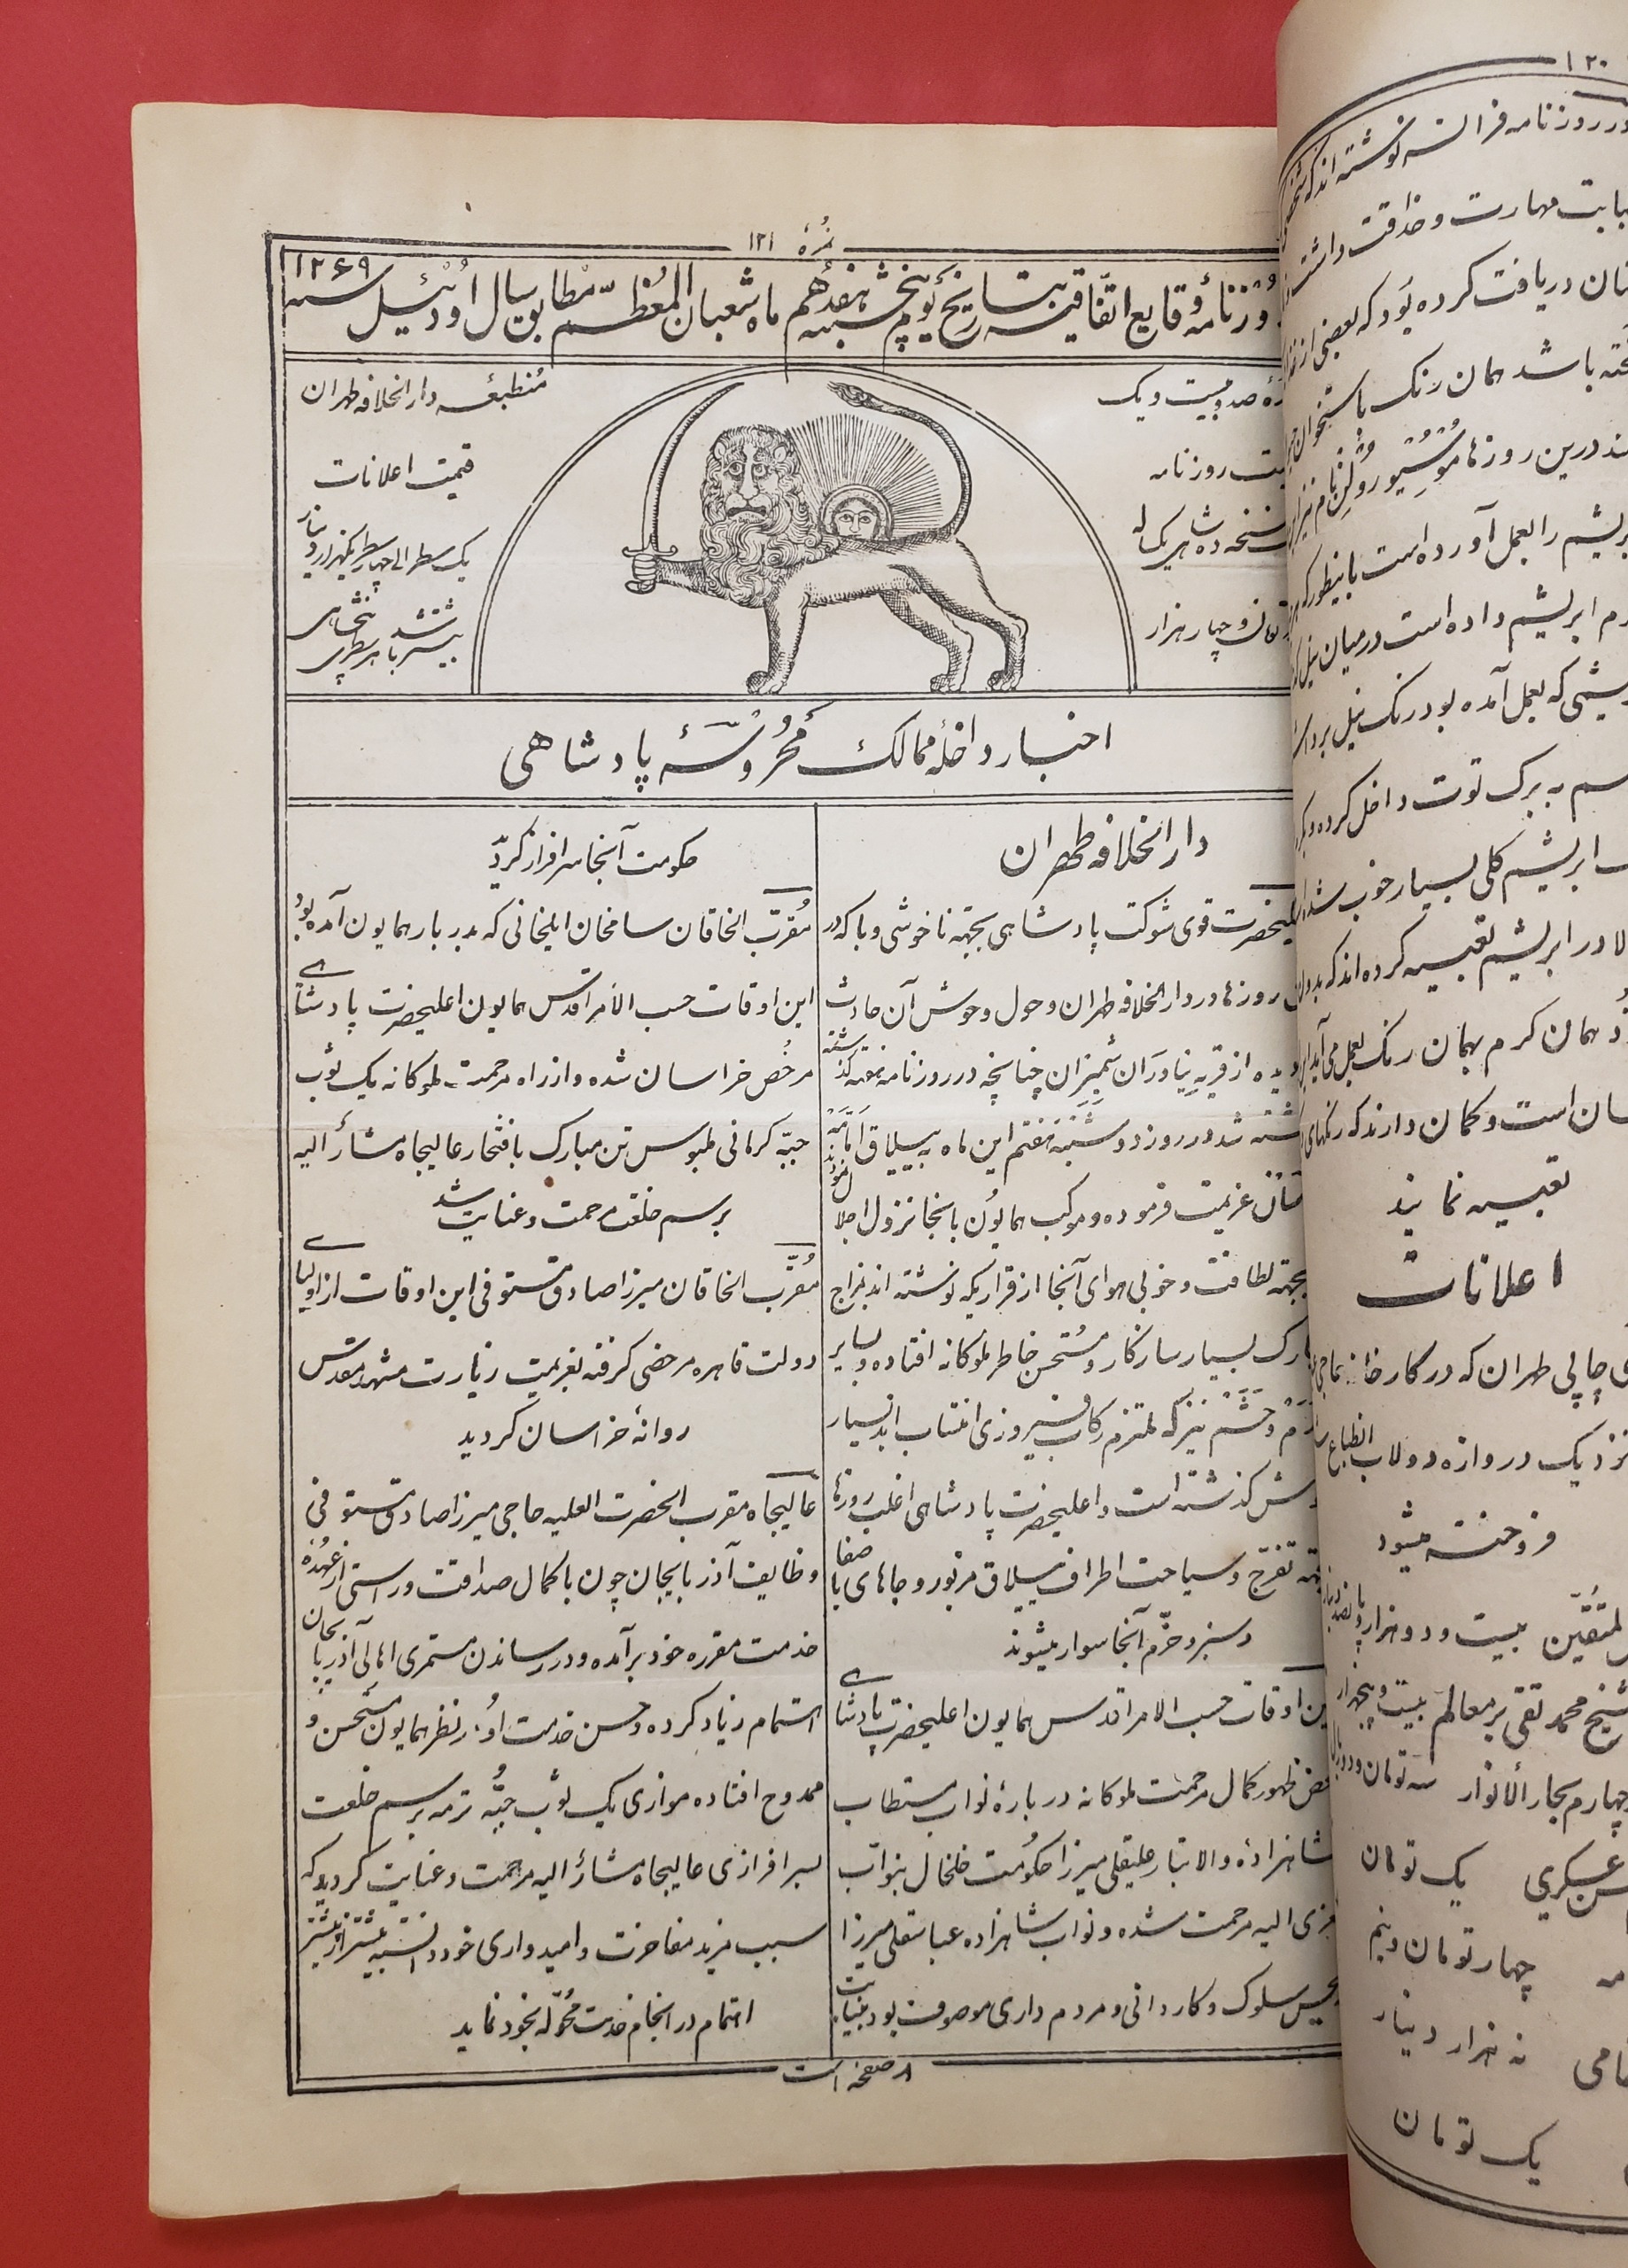 نمرهٔ ۱۲۱
روزنامهٔ وقایع اتفاقیه بتاریخ یوم پنجشنبه هفدهم ماه شعبان المعظم مطابق سال اودئیل سنه ۱۲۶۹
نمرهٔ صد و بیست و یک
قیمت روزنامه
نسخه ده شاهی یکساله
تومان و چهار هزار
منطبعه دار الخلافه طهران
قیمت اعلانات
یک سطر الی چهار سطر یکهزار دینار
بیشتر باشد هر سطری پنجشاهی
اخبار داخلهٔ ممالک محروسهٔ پادشاهی
دار الخلافه طهران
اعلیحضرت قوی شوکت پادشاهی بجهة ناخوشی وبا که در
روزها در دار الخلافه طهران و حول و حوش آن حادث
از قریه نیاوران شمیران چنانچه در روزنامه هفته گذشته
شد در روز دوشنبه هفتم این ماه به ییلاق
عزیمت فرموده و موکب همایون بآنجا نزول اجلال نموده‌اند
بجهة لطافت و خوبی هوای آنجا از قراریکه نوشته اند بمزاج
مبارک بسیار سازگار و مستحسن خاطر ملوکانه افتاده و سایر
خدم و حشم نیز که ملتزم رکاب فیروزی انتساب اند بسیار
خوش گذشته است و اعلیحضرت پادشاهی اغلب روزها
بجهة تفرج و سیاحت اطراف ییلاق مزبور و جاهای با صفا
و سبز و خرم آنجا سوار میشوند
این اوقات حسب الامر اقدس همایون اعلیحضرت پادشاهی
محض ظهور کمال مرحمت ملوکانه در بارهٔ نواب مستطاب
شاهزادهٔ والاتبار علیقلی میرزا حکومت خلخال بنواب
معزی الیه مرحمت شده و نواب شاهزاده عباسقلی میرزا
بحسن سلوک و کاردانی و مردم داری موصوف بود بنیابت
حکومت آنجا سرافراز کردید
مقرب الخاقان سامخان ایلخانی که بدربار همایون آمده بود
این اوقات حسب الامر اقدس همایون اعلیحضرت پادشاهی
مرخص خراسان شده و از راه مرحمت ملوکانه یک ثوب
جبّه کرمانی ملبوس تن مبارک بافتخار عالیجاه مشارٌ الیه
برسم خلعت مرحمت و عنایت شد
مقرب الخاقان میرزا صادق مستوفی این اوقات از اولیای
دولت قاهره مرخصی کرفته بعزیمت زیارت مشهد مقدس
روانهٔ خراسان کردید
عالیجاه مقرب الحضرت العلیه حاجی میرزا صادق مستوفی
وظایف آذربایجان چون با کمال صداقت و راستی از عهدهٔ
خدمت مقرره خود برآمده و در رساندن مستمری اهالی آذربایجان
اهتمام زیاد کرده و حسن خدمت او در نظر همایون مستحسن و
ممدوح افتاده موازی یک ثوب جبّه ترمه برسم خلعت
بسرافرازی عالیجاه مشارٌ الیه مرحمت و عنایت کردید که
سبب مزید مفاخرت و امیدواری خود دانسته بیشتر از پیشتر
اهتمام در انجام خدمت محوّله بخود نماید
۸ صفحه است
۱۲۰
در روزنامه فرانسه نوشته اند که شخصی
بابت مهارت و حذاقت داشت
دریافت کرده بود که بعضی از
باشد همان رنک باستخوان
درین روزها موسیو رولن نام نیز
ابریشم را بعمل آورده است باینطور که
کرم ابریشم داده است در میان نیل
که بعمل آمده بود رنک نیل برداشته
به برک توت داخل کرده و
ابریشم گلی بسیار خوب شد
در ابریشم تعبیه کرده اند که بدون
همان کرم بهمان رنک بعمل می آید
است و کمان دارند که رنکهای
تعبیه نمایند
اعلانات
چاپی طهران که در کارخانه حاجی
نزدیک دروازه دولاب انطباع
فروخته میشود
المتقین بیست و دو هزار و پانصد دینار
شیخ محمد تقی بر معالم بیست و پنجهزار
چهارم بحار الانوار سه تومان و دو ریال
عسکری یک تومان
چهار تومان و نیم
جامی نه هزار دینار
یک تومان